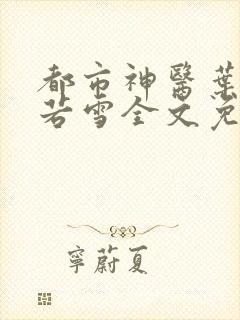 都市神醫葉
若雪全文免
寧蔚夏